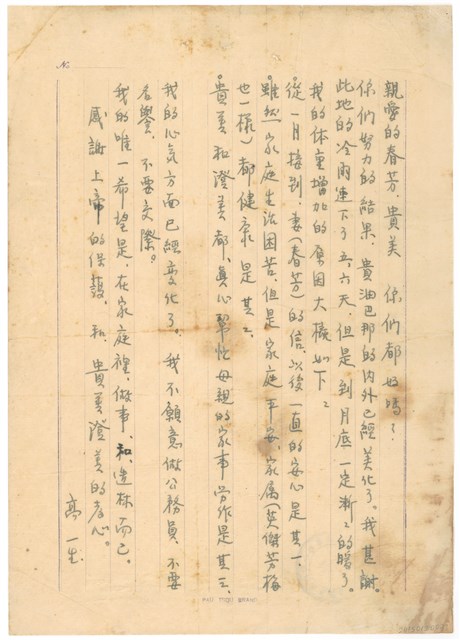 親愛的春芳、貴美 你們都好嗎?
你們努力的結果，貴油巴那的内外已經美化了。我甚謝。
此地的冷雨連下了五、六天，但是到月底一定漸々的暖了。
我的体重增加的原因大概如下：
從一月接到妻(春芳)的信，以後一直的安心是其一。
雖然家庭生活困苦，但是家庭平安，家属(英傑芳梅
也一樣)都健康是其二。
貴美和澄美都真心幫忙母親的家事労作是其三。
我的心気方面已經変化了。我不願意做公務員，不要
名譽，不要交際。
我的唯一希望是，在家庭裡，做事，和造林而已。
感謝上帝的保護，和貴美澄美的孝心。
高一生
No